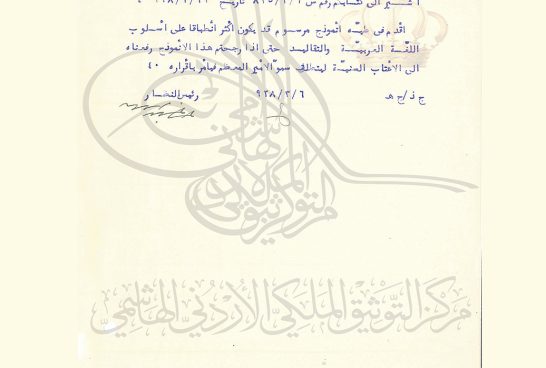 أشير الى
أقدم في طيه أنموذج مرسوم قد يكون أكثر أنطباقا على أسلوب
اللغة العربية والتقاليد حتى اذا رجحتم هذا الأنموذج رفعناه
الى الأعتاب السنية ليتطلف سمو الأمير المعظم فيأمر باقراره ٤٠
ج ذ/ج هـ ٩٢٨/٢/٦ رئيس النظار
مركز التوثيق الملكي الأردني الهاشمي
مركز التوثيق الملكي الأردني الهاشمي